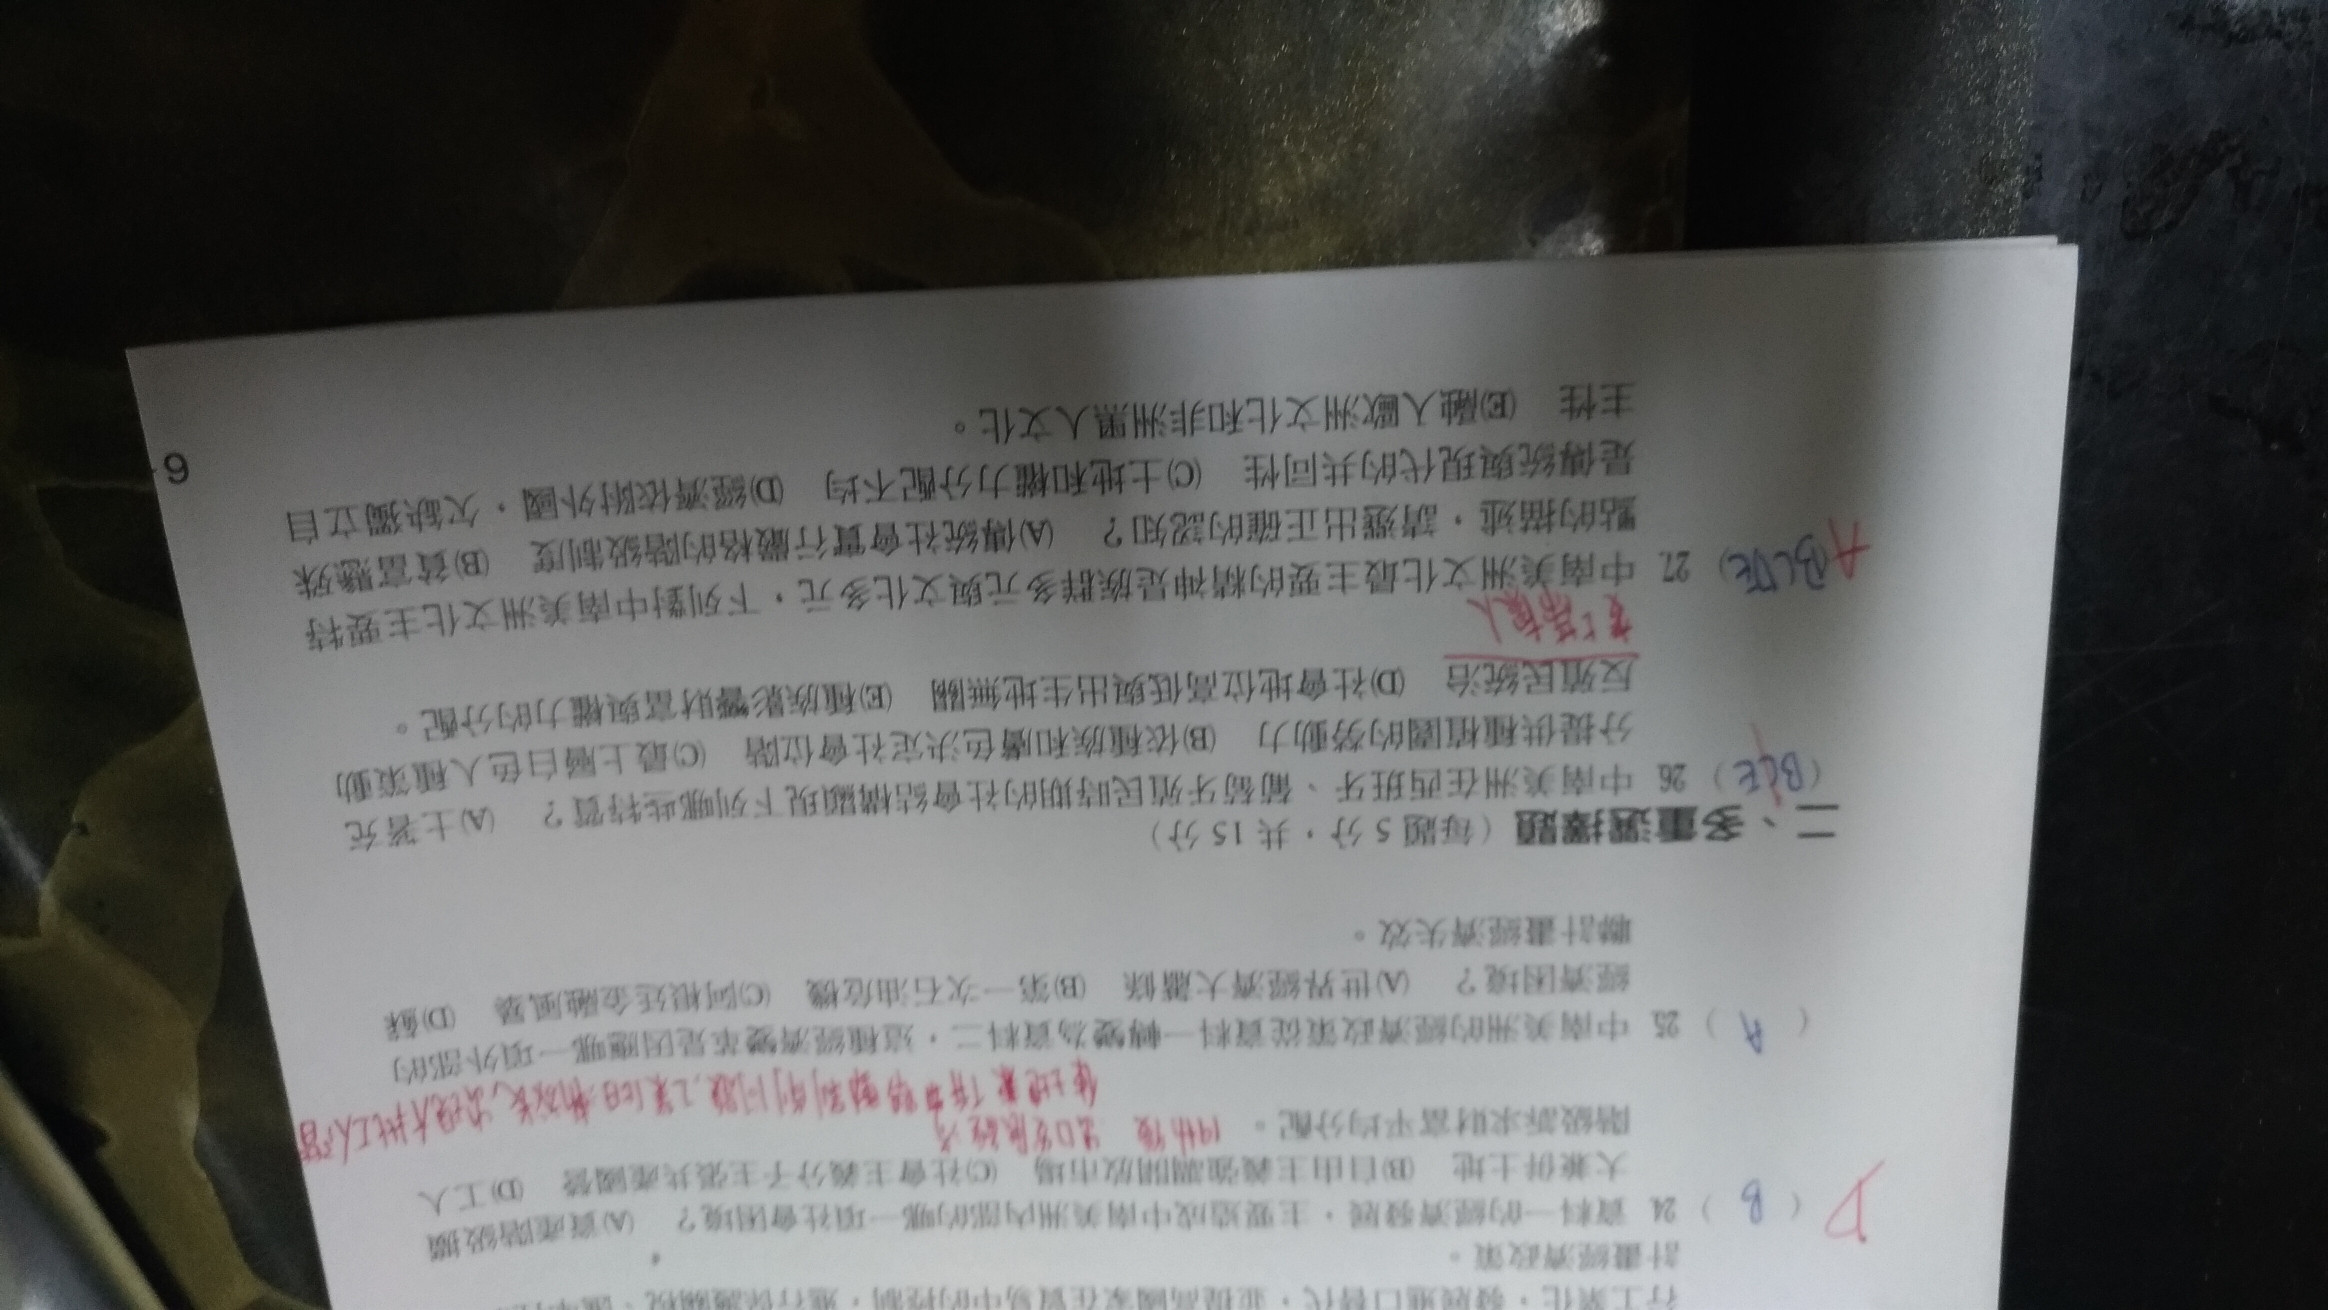 行工業化，發展進口替代，並提高國家在貿易中的控制，進行保護關稅、
計畫經濟政策。
D
( B ) 24. 資料一的經濟發展，主要造成中南美洲內部的哪一項社會困境？ (A)資產階級擴
大兼併土地 (B)自由主義強調開放市場 (C)社會主義分子主張共產國營 (D)工人
階級訴求財富平均分配。
19世紀
( A ) 25. 中南美洲的經濟政策從資料一轉變為資料二，這種經濟變革是因應哪一項外部的
經濟困境？ (A)世界經濟大蕭條 (B)第一次石油危機 (C)阿根廷金融風暴 (D)蘇
聯計畫經濟失效。
二、多重選擇題（每題 5 分，共 15 分）
( BCE ) 26. 中南美洲在西班牙、葡萄牙殖民時期的社會結構顯現下列哪些特質？ (A)土著充
分提供種植園的勞動力 (B)依種族和膚色決定社會位階 (C)最上層白色人種策動
反殖民統治 (D)社會地位高低與出生地無關 (E)種族影響財富與權力的分配。
A
BCDE) 27. 中南美洲文化最主要的精神是族群多元與文化多元，下列對中南美洲文化主要特
點的描述，請選出正確的認知？ (A)傳統社會實行嚴格的階級制度 (B)貧富懸殊
是傳統與現代的共同性 (C)土地和權力分配不均 (D)經濟依附外國，欠缺獨立自
主性 (E)融入歐洲文化和非洲黑人文化。
9